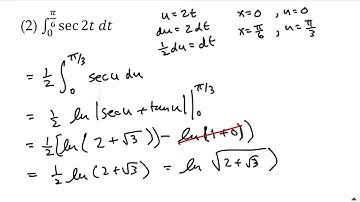 (2) ∫₀^{π/6} sec 2t dt
u = 2t    x = 0 , u = 0
du = 2dt    x = π/6 , u = π/3
½ du = dt
= ½ ∫₀^{π/3} sec u du
= ½ ln |sec u + tan u| |₀^{π/3}
= ½ [ln (2 + √3)) − ln (1 + 0)]
= ½ ln (2 + √3) = ln √(2 + √3)